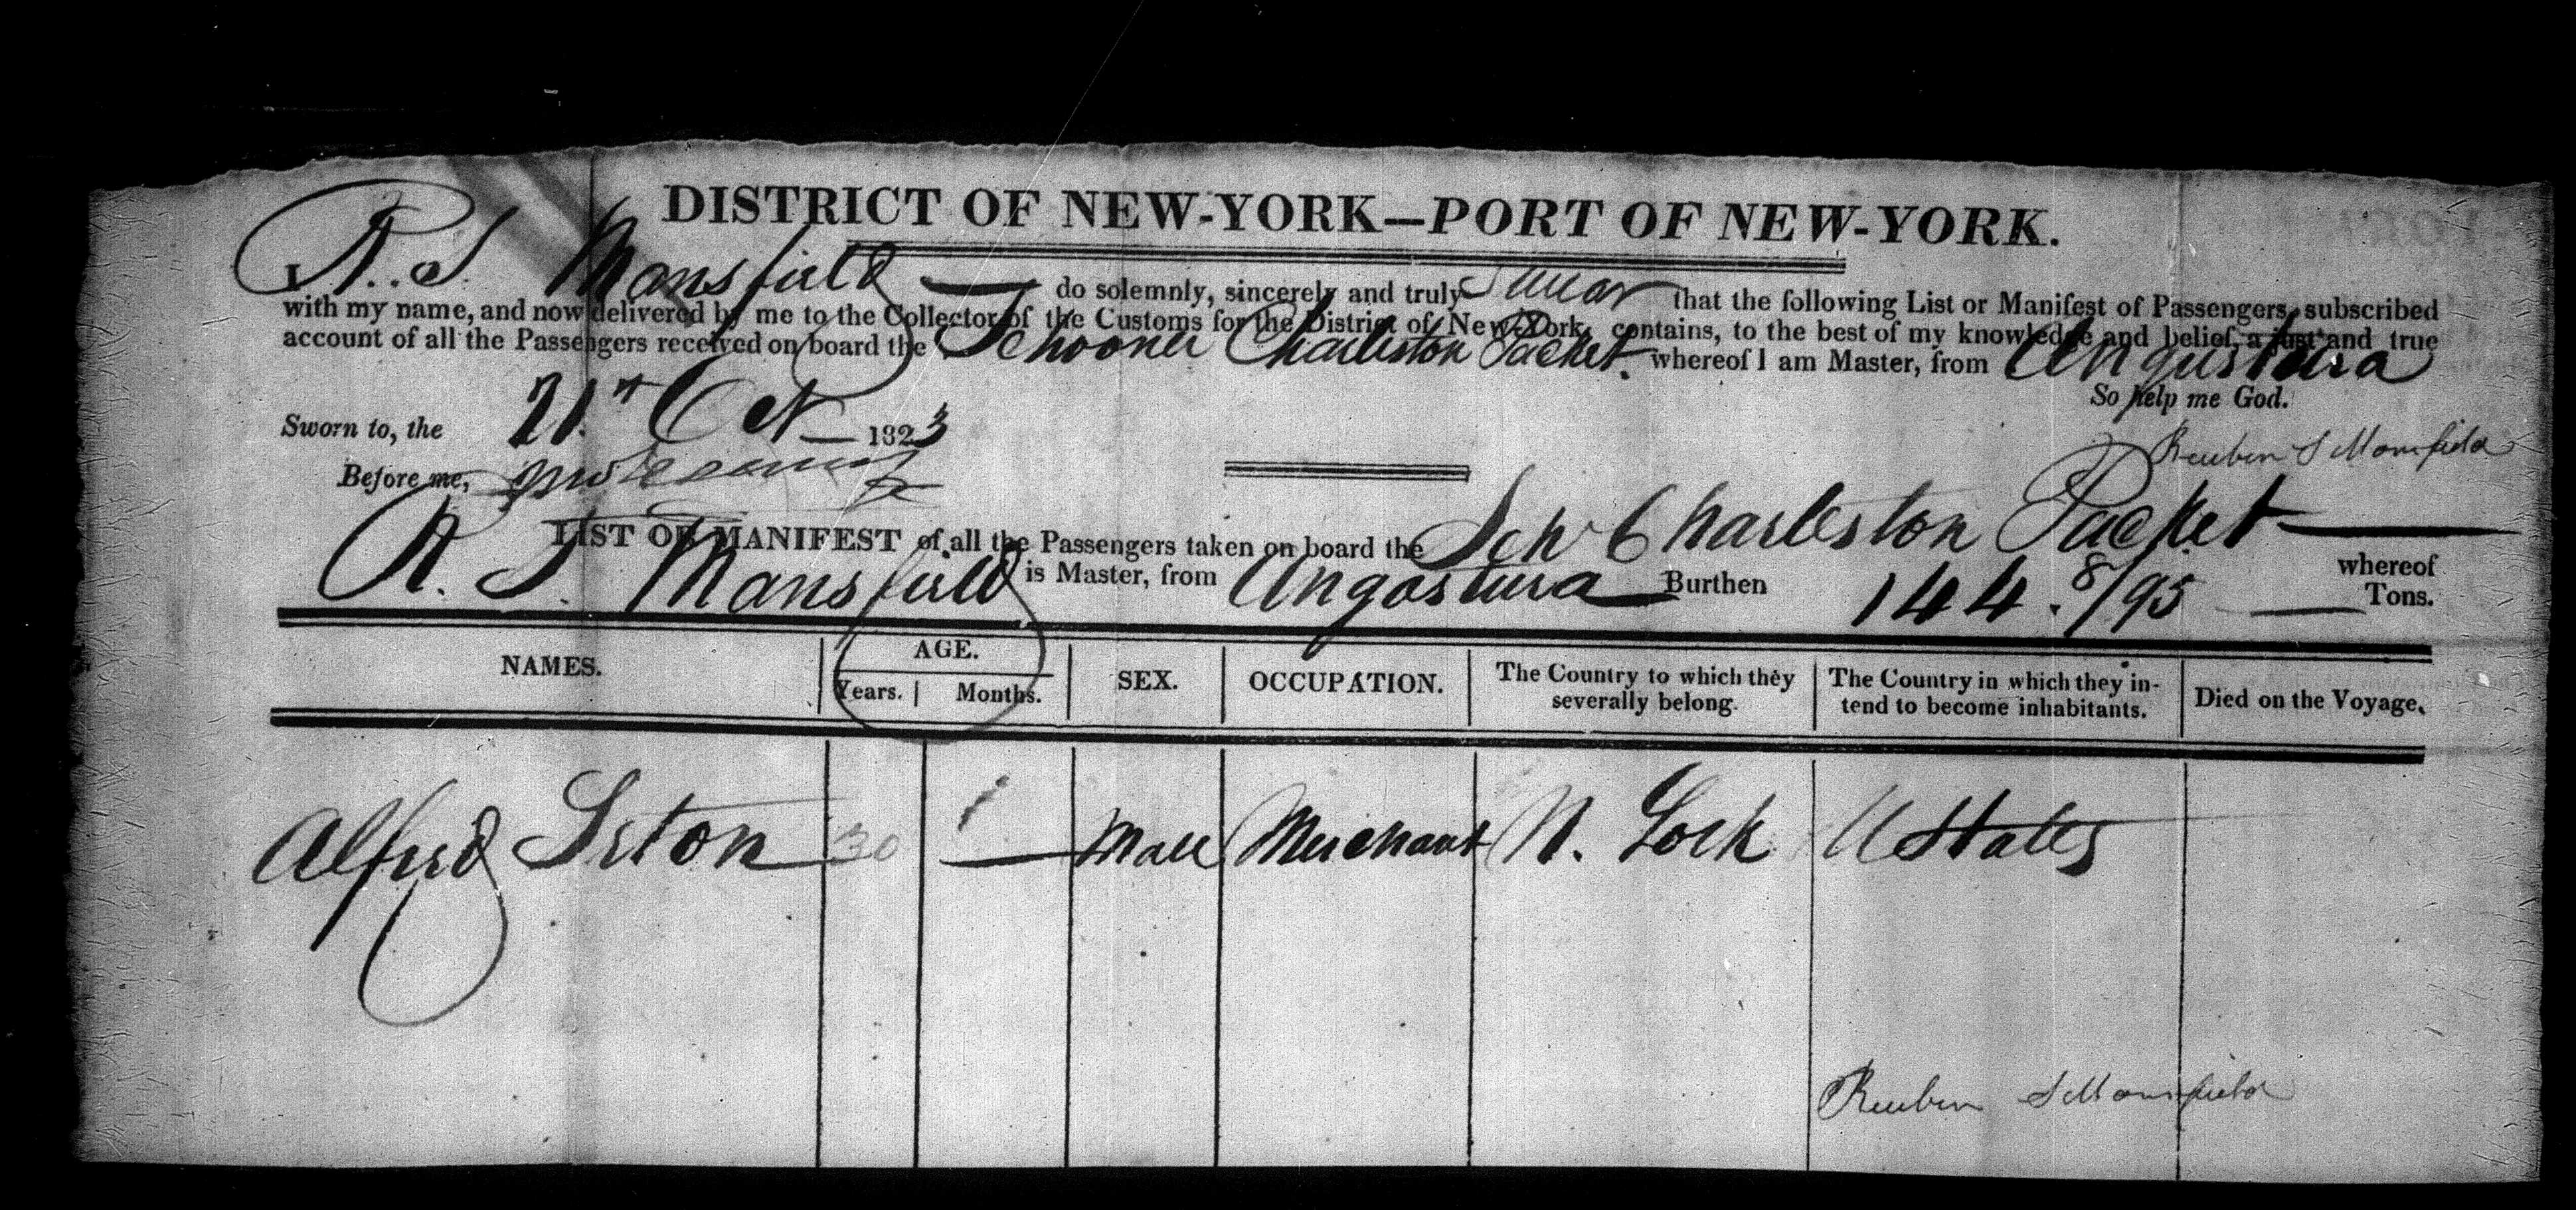 DISTRICT OF NEW-YORK—PORT OF NEW-YORK.
I, R. S. Mansfield — do solemnly, sincerely and truly Swear that the following List or Manifest of Passengers, subscribed
with my name, and now delivered by me to the Collector of the Customs for the District of New-York, contains, to the best of my knowledge and belief, a just and true
account of all the Passengers received on board the Schooner Charleston Packet. whereof I am Master, from Angustura
So help me God.
Sworn to, the 21st Oct — 1823
Reuben S Mansfield
Before me,
LIST OR MANIFEST of all the Passengers taken on board the Schr Charleston Packet — whereof
R. S. Mansfield is Master, from Angostura Burthen 144. 8/95 — Tons.
NAMES. AGE. SEX. OCCUPATION. The Country to which they severally belong. The Country in which they intend to become inhabitants. Died on the Voyage.
Years. Months.
Alfred Seton 30 — Male Merchant N. York U States
Reuben S Mansfield